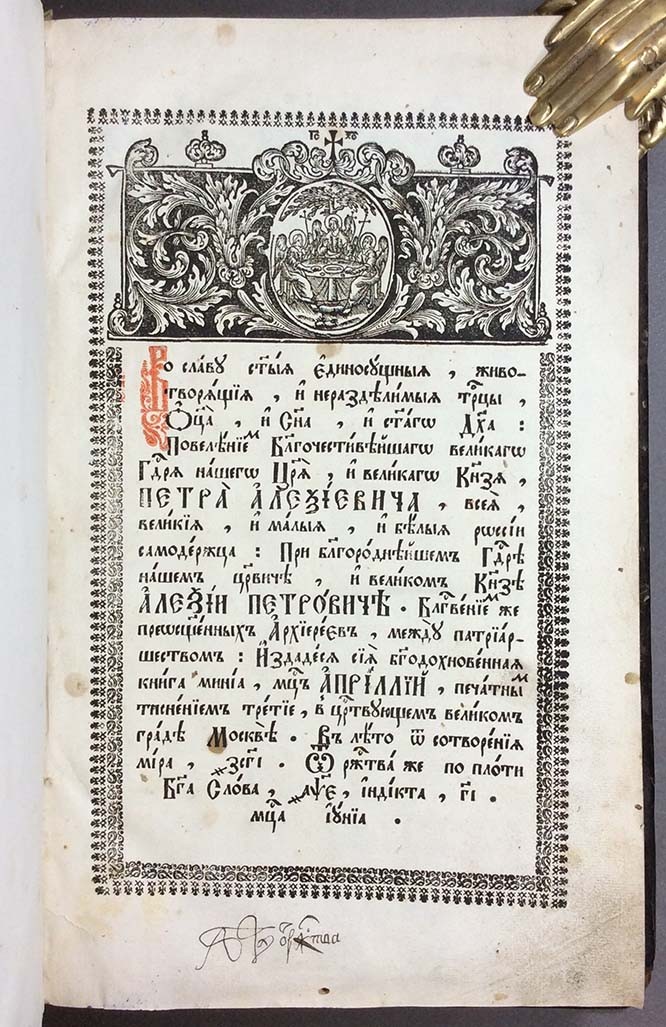 І҃С Х҃С
Во славу ст҃ыѧ єдиносущныѧ , живо-
творѧщїѧ , и нераздѣлимыѧ трⷪ҇цы ,
Ѻ҆ц҃а̀ , и҆ сн҃а , и҆ ст҃а́гѡ дх҃а :
Повелѣ́нїеⷨ Бл҃гочести́вѣйшагѡ вели́кагѡ
Гдⷭ҇рѧ на́шегѡ Цр҃ѧ̀ , и҆ вели́кагѡ Кнѧ́зѧ ,
ПЕТРА̀ А҆ЛЕѮІ́ЕВИЧА , всеѧ̀ ,
вели́кїѧ , и҆ ма́лыѧ , и҆ бѣ́лыѧ рѡссі́и
самоде́ржца : При бл҃горо́днѣйшемъ Гдⷭ҇рѣ
на́шемъ цр҃ви́чѣ , и҆ вели́комъ Кнѧ́зѣ
А҆ЛЕѮІ́И ПЕТРО́ВИЧѢ . Бл҃гве́нїеⷨ же
преѡсщ҃е́нныхъ А҆рхїере́євъ , междꙋ̀ патрїа́р-
шествомъ : И҆здаде́сѧ сїѧ̀ бг҃одохнове́ннаѧ
кни́га мині́а , мц҃ъ А҆ПРІ́ЛЛІЙ , печа́тныⷨ
тисне́нїемъ тре́тїе , в цр҃твующемъ вели́комъ
гра́дѣ Москвѣ̀ . Въ лѣ́то ѿ сотворе́нїѧ
мі́ра , ҂зс҃гі . Ѿ рж҃тва́ же по пло́ти
Бг҃а Сло́ва , ҂аѱ҃е , і҆нді́кта , г҃і .
мц҃а і҆ꙋ́нїа .